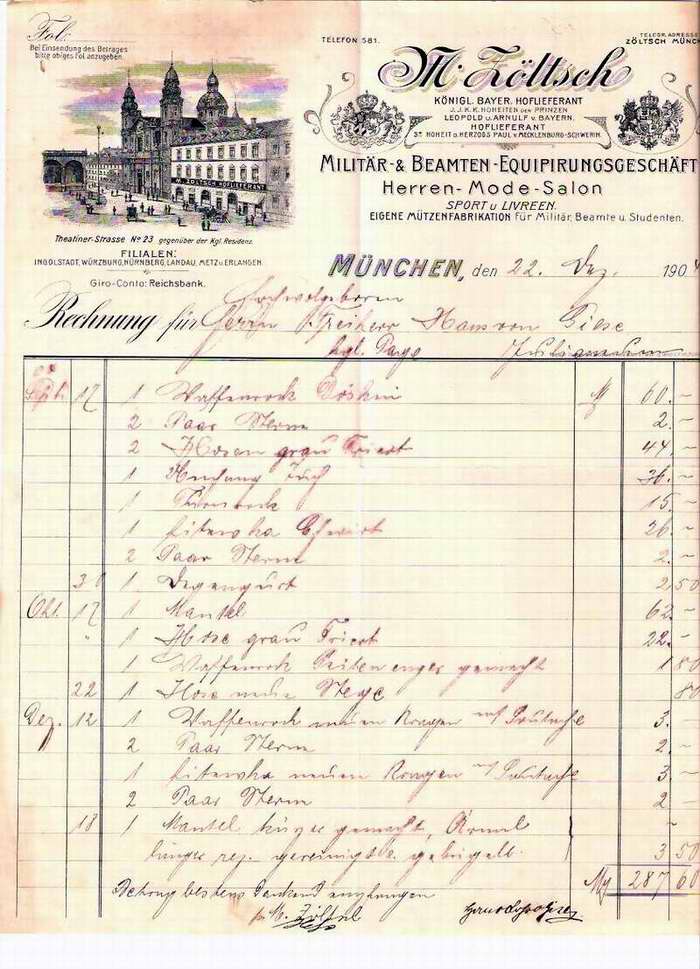 Fol:
Bei Einsendung des Betrages
bitte obiges Fol. anzugeben.
TELEFON 581.
TELEGR. ADRESSE
ZÖLTSCH MÜNCH
M. Zöltsch
KÖNIGL. BAYER. HOFLIEFERANT
J.J.K.K. HOHEITEN DER PRINZEN
LEOPOLD U. ARNULF V. BAYERN.
HOFLIEFERANT
SR HOHEIT D. HERZOGS PAUL V. MECKLENBURG-SCHWERIN.
M. ZÖLTSCH HOFLIEFERANT
MILITÄR- & BEAMTEN-EQUIPIRUNGSGESCHÄFT
Herren-Mode-Salon
SPORT U. LIVREEN.
EIGENE MÜTZENFABRIKATION für Militär, Beamte u. Studenten.
Theatiner-Strasse No 23 gegenüber der Kgl. Residenz.
FILIALEN:
INGOLSTADT, WÜRZBURG, NÜRNBERG, LANDAU, METZ U. ERLANGEN.
Giro-Conto: Reichsbank.
MÜNCHEN, den 22. Dez. 1904
Hochwolgeboren
Rechnung für Herrn Freiherr Hans von Giese
kgl. Page
Sept. 17 1 Waffenrock Döskin M 60.–
2 Paar Sterne 2.–
2 Hosen grau Tricot 44.–
1 Tuch 36.–
1 15.–
1 Litewka Cheviot 26.–
2 Paar Sterne 2.–
30 1 Degengurt 2 50
Okt. 17 1 Mantel 62.–
" 1 Hose grau Tricot 22.–
1 Waffenrock Seiten enger gemacht 1 80
22 1 Hose neue Stege 80
Dez. 12 1 Waffenrock neuen Kragen m/ Soutache 3.–
2 Paar Sterne 2.–
1 Litewka neuen Kragen m/ Soutache 3.–
2 Paar Sterne 2 –
18 1 Mantel kürzer gemacht, Ärmel
länger rep. gereinigt u. gebügelt. 3 50
M 287 60
Betrag bestens dankend empfangen
M. Zöltsch